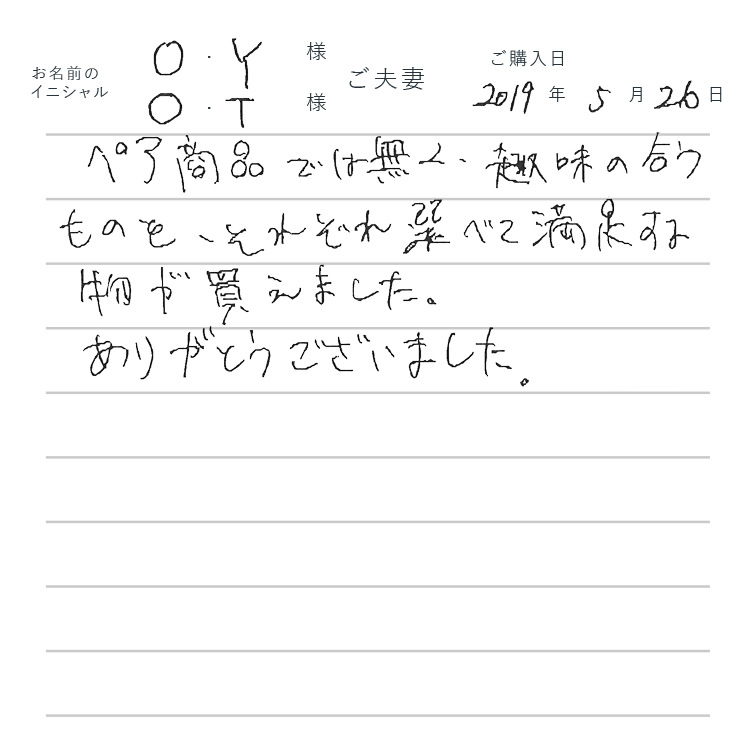 お名前の
イニシャル
O・Y 様
O・T 様
ご夫妻
ご購入日
2019年 5月 26日
ペア商品では無く、趣味の合う
ものを、それぞれ選べて満足する
物が買えました。
ありがとうございました。